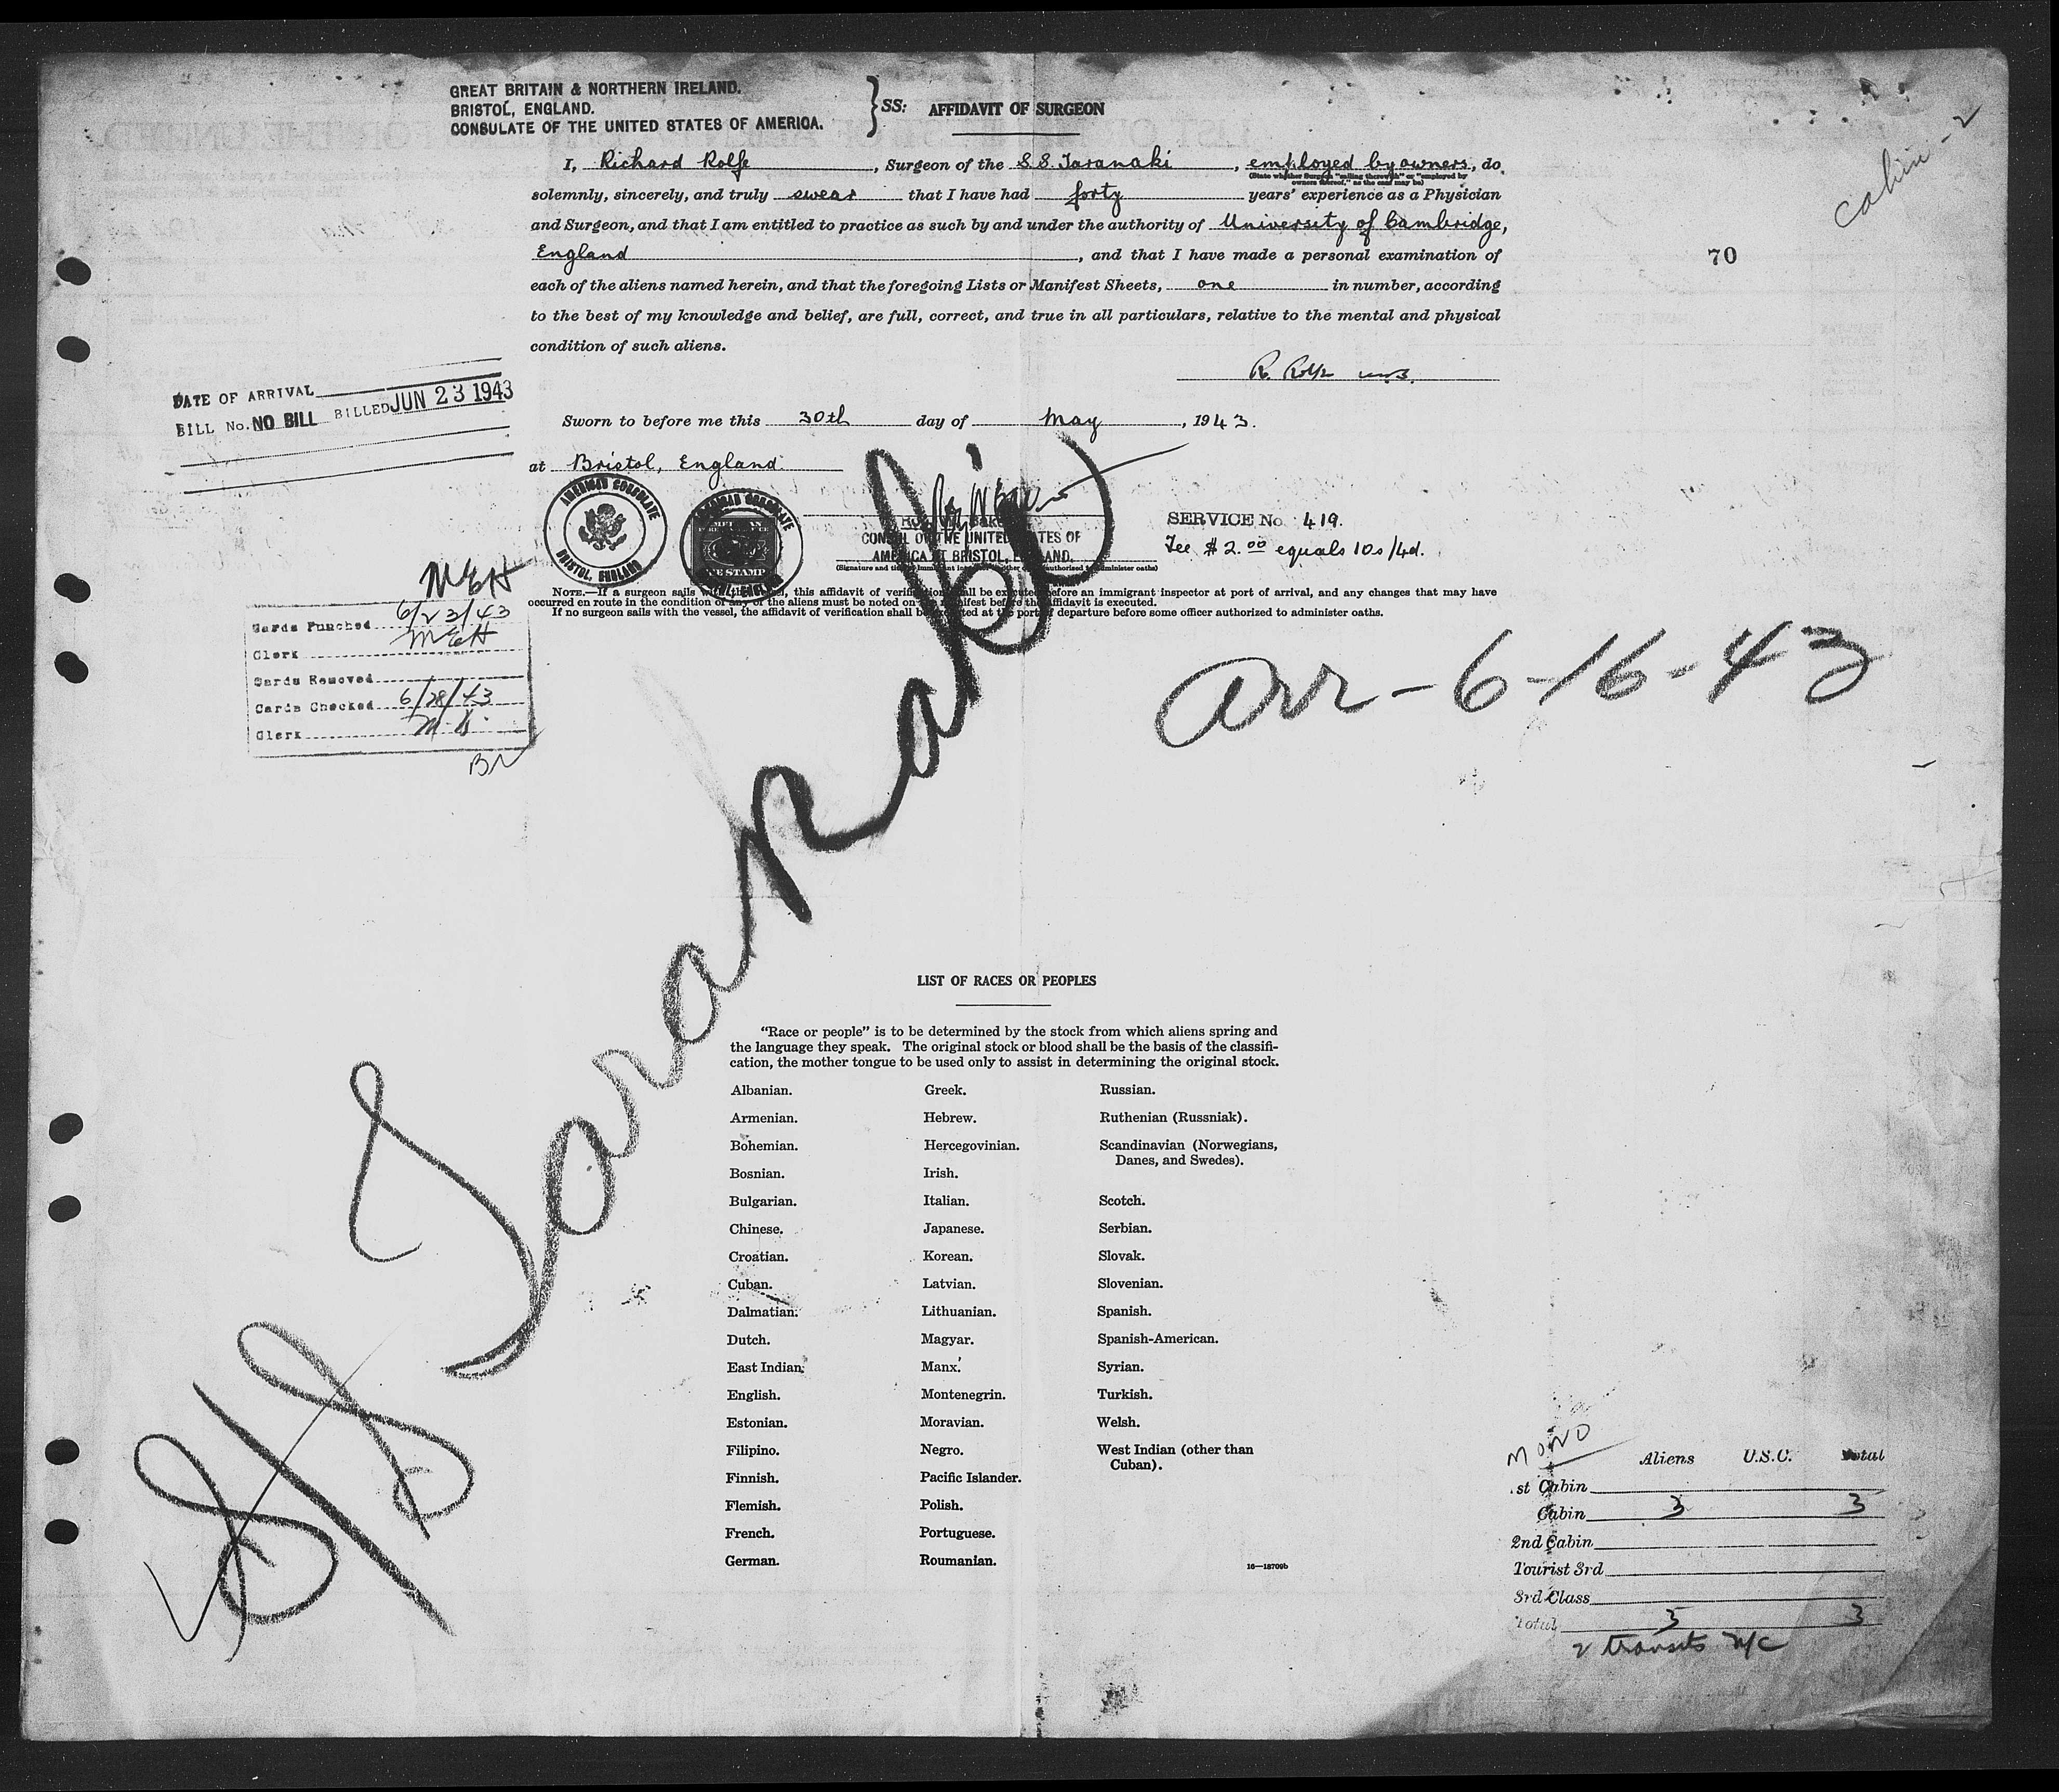 GREAT BRITAIN & NORTHERN IRELAND.
BRISTOL, ENGLAND.
CONSULATE OF THE UNITED STATES OF AMERICA.
SS: AFFIDAVIT OF SURGEON
cabin - 2
I, Richard Rolfe, Surgeon of the S.S. Taranaki, employed by owners, do
(State whether Surgeon "sailing therewith" or "employed by
owners thereof," as the case may be)
solemnly, sincerely, and truly swear that I have had forty years' experience as a Physician
and Surgeon, and that I am entitled to practice as such by and under the authority of University of Cambridge,
England, and that I have made a personal examination of
70
each of the aliens named herein, and that the foregoing Lists or Manifest Sheets, one in number, according
to the best of my knowledge and belief, are full, correct, and true in all particulars, relative to the mental and physical
condition of such aliens.
R. Rolfe M.B.
DATE OF ARRIVAL
BILL No. NO BILL BILLED JUN 23 1943
Sworn to before me this 30th day of May, 1943.
at Bristol, England.
AMERICAN CONSULATE
BRISTOL, ENGLAND
CONSUL OF THE UNITED STATES OF
AMERICA AT BRISTOL, ENGLAND.
SERVICE No 419.
Fee $2.00 equals 10s/4d.
NOTE.—If a surgeon sails with the vessel, this affidavit of verification shall be executed before an immigrant inspector at port of arrival, and any changes that may have
occurred en route in the condition of any of the aliens must be noted on the manifest before the affidavit is executed.
If no surgeon sails with the vessel, the affidavit of verification shall be executed at the port of departure before some officer authorized to administer oaths.
MEH
Cards Punched 6/23/43
Clerk MEH
Cards Removed
Cards Checked 6/28/43
Clerk M.K.
BN
arr - 6-16-43
S/S Taranaki
LIST OF RACES OR PEOPLES
"Race or people" is to be determined by the stock from which aliens spring and
the language they speak. The original stock or blood shall be the basis of the classifi-
cation, the mother tongue to be used only to assist in determining the original stock.
Albanian. Greek. Russian.
Armenian. Hebrew. Ruthenian (Russniak).
Bohemian. Hercegovinian. Scandinavian (Norwegians,
Danes, and Swedes).
Bosnian. Irish.
Bulgarian. Italian. Scotch.
Chinese. Japanese. Serbian.
Croatian. Korean. Slovak.
Cuban. Latvian. Slovenian.
Dalmatian. Lithuanian. Spanish.
Dutch. Magyar. Spanish-American.
East Indian. Manx. Syrian.
English. Montenegrin. Turkish.
Estonian. Moravian. Welsh.
Filipino. Negro. West Indian (other than
Cuban).
Finnish. Pacific Islander.
Flemish. Polish.
French. Portuguese.
German. Roumanian.
16—18709b
MONO
Aliens U.S.C. Total
1st Cabin
Cabin 3 3
2nd Cabin
Tourist 3rd
3rd Class
Total 3 3
2 transits N/C